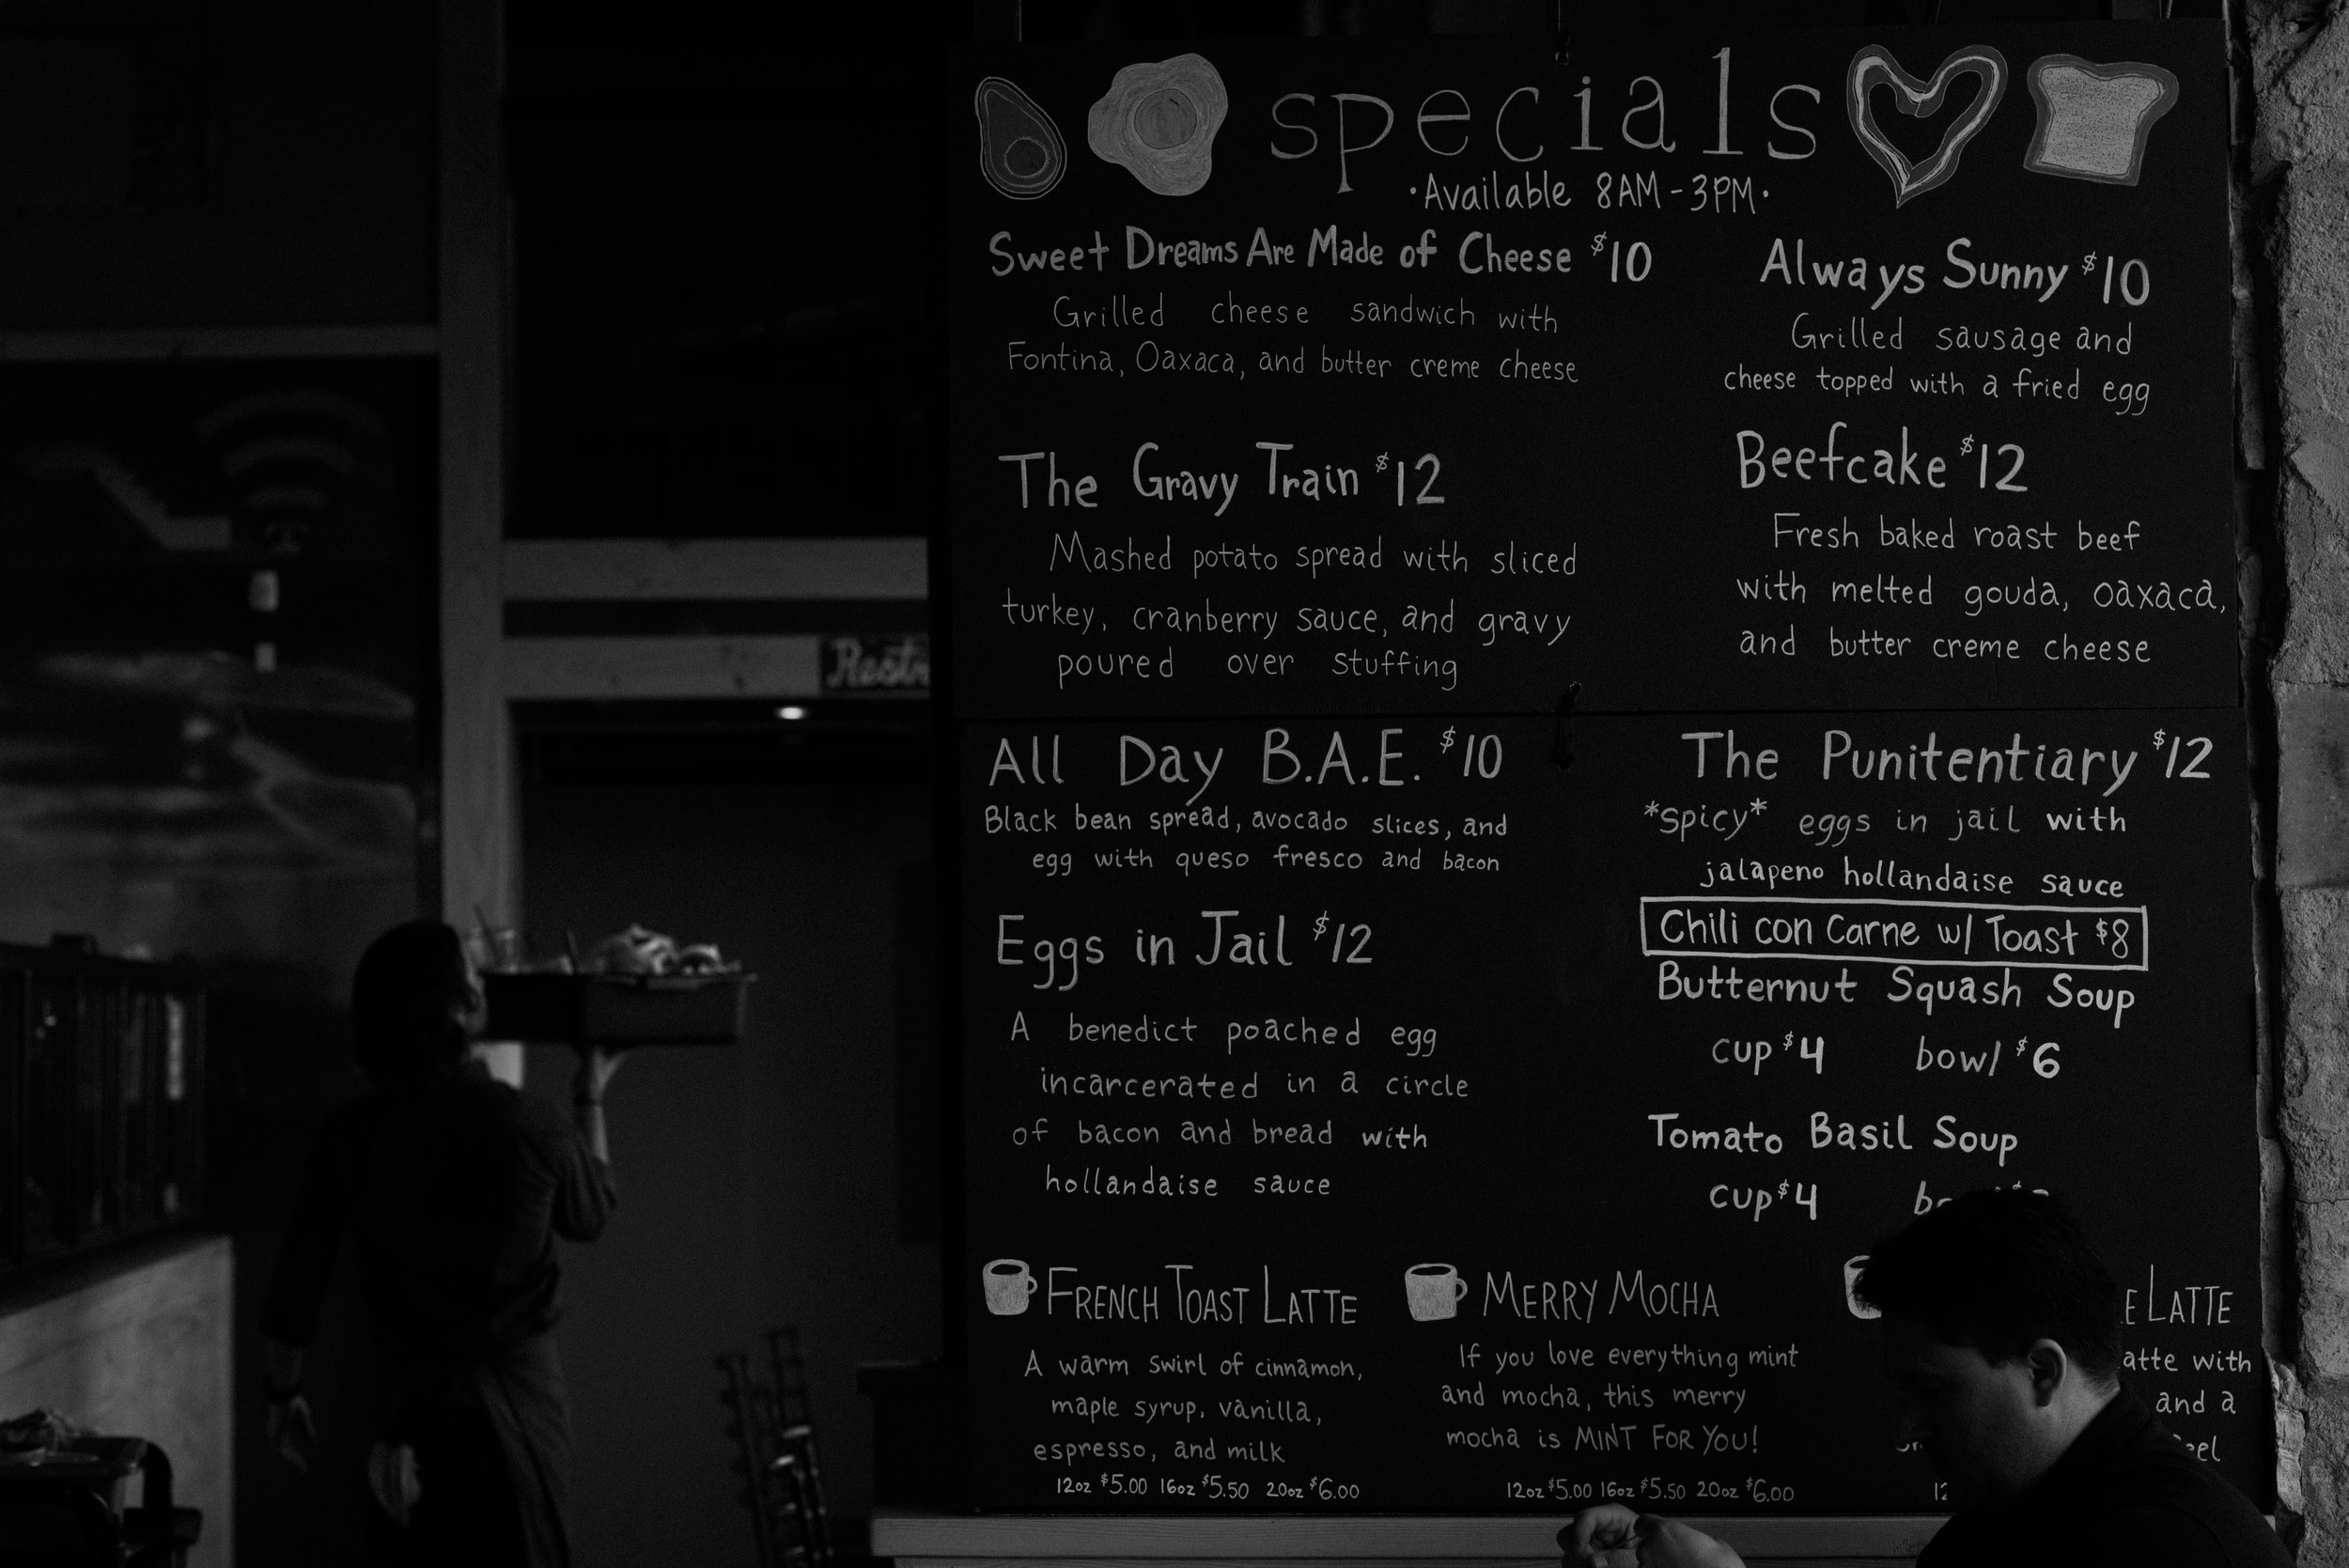 specials
·Available 8AM-3PM·
Sweet Dreams Are Made of Cheese $10
Grilled cheese sandwich with
Fontina, Oaxaca, and butter creme cheese
The Gravy Train $12
Mashed potato spread with sliced
turkey, cranberry sauce, and gravy
poured over stuffing
Always Sunny $10
Grilled sausage and
cheese topped with a fried egg
Beefcake $12
Fresh baked roast beef
with melted gouda, oaxaca,
and butter creme cheese
All Day B.A.E. $10
Black bean spread, avocado slices, and
egg with queso fresco and bacon
Eggs in Jail $12
A benedict poached egg
incarcerated in a circle
of bacon and bread with
hollandaise sauce
The Punitentiary $12
*spicy* eggs in jail with
jalapeno hollandaise sauce
Chili con Carne w/ Toast $8
Butternut Squash Soup
cup $4 bowl $6
Tomato Basil Soup
cup $4
FRENCH TOAST LATTE
A warm swirl of cinnamon,
maple syrup, vanilla,
espresso, and milk
12oz $5.00 16oz $5.50 20oz $6.00
MERRY MOCHA
If you love everything mint
and mocha, this merry
mocha is MINT FOR YOU!
12oz $5.00 16oz $5.50 20oz $6.00
LATTE
with
and a